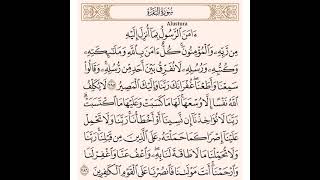 سُورَةُ الْبَقَرَةِ
Alustura
ءَامَنَ الرَّسُولُ بِمَا أُنْزِلَ إِلَيْهِ
مِن رَّبِّهِ وَالْمُؤْمِنُونَ كُلٌّ ءَامَنَ بِاللَّهِ وَمَلَٰٓئِكَتِهِ
وَكُتُبِهِ وَرُسُلِهِ لَا نُفَرِّقُ بَيْنَ أَحَدٍ مِّن رُّسُلِهِ وَقَالُوا
سَمِعْنَا وَأَطَعْنَا غُفْرَانَكَ رَبَّنَا وَإِلَيْكَ الْمَصِيرُ ٢٨٥ لَا يُكَلِّفُ
اللَّهُ نَفْسًا إِلَّا وُسْعَهَا لَهَا مَا كَسَبَتْ وَعَلَيْهَا مَا اكْتَسَبَتْ
رَبَّنَا لَا تُؤَاخِذْنَا إِن نَّسِينَا أَوْ أَخْطَأْنَا رَبَّنَا وَلَا تَحْمِلْ
عَلَيْنَا إِصْرًا كَمَا حَمَلْتَهُ عَلَى الَّذِينَ مِن قَبْلِنَا رَبَّنَا
وَلَا تُحَمِّلْنَا مَا لَا طَاقَةَ لَنَا بِهِ وَاعْفُ عَنَّا وَاغْفِرْ لَنَا
وَارْحَمْنَا أَنتَ مَوْلَىٰنَا فَانصُرْنَا عَلَى الْقَوْمِ الْكَٰفِرِينَ ٢٨٦